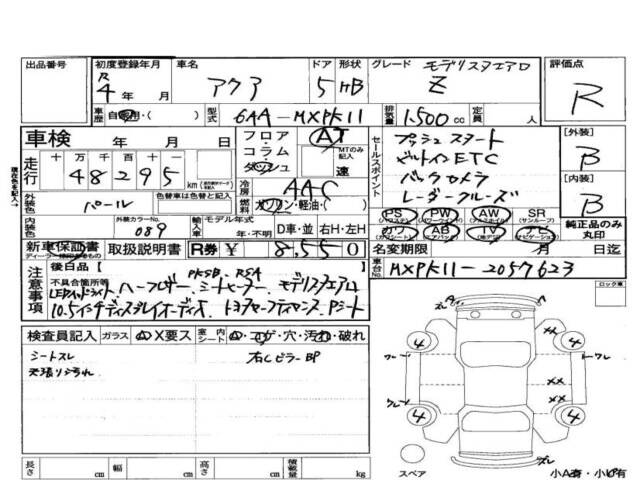 出品番号 初度登録年月 車名 ドア 形状 グレード モデリスタエアロ 評価点
R 4年 月 アクア 5 HB Z R
車歴 自家用・( ) 型式 6AA-MXPK11 排気量 1.500cc 定員 人
車検 年 月 日 フロア コラム ダッシュ AT MTのみ記入 速
走行 十 万 千 百 十 一
4 8 2 9 5 km
セールスポイント プッシュスタート
ビルトインETC
バックカメラ
レーダークルーズ
[外装] B
[内装] B
外装色 パール 色替車は色替前色 冷房 AAC
燃料 ガソリン・軽油・( )
内装色 外装カラーNo. 089 輸入車 モデル年式 年・不明 D車・並 右H・左H
PS (パワステ) PW (パワーウィンド) AW (アルミホイール) SR (サンルーフ)
カワ AB (エアバッグ) TV ナビ (ナビゲーション)
純正品のみ丸印
新車保証書 取扱説明書 R券 ¥ 8,550 名変期限 月 日迄
車台No. MXPK11-2057623
注意事項 後日品 不具合箇所等 PKSB、RSA
LEDヘッドライト、ハーフレザー、シートヒーター、モデリスタエアロ
10.5インチディスプレイオーディオ、トヨタチームメイト、Pシート
検査員記入 ガラス A X要ス 室内 シート A・コゲ・穴・汚れ・破れ
シートスレ 右CピラーBP
天張リ汚れ
ロック車
A スレ
4 4
ワレ ワレ
XX
XX
ワレ
4 4
スレ
スペア 小A有・小凹有
長さ cm 幅 cm 高さ cm 積載量 kg
現在色を記入→